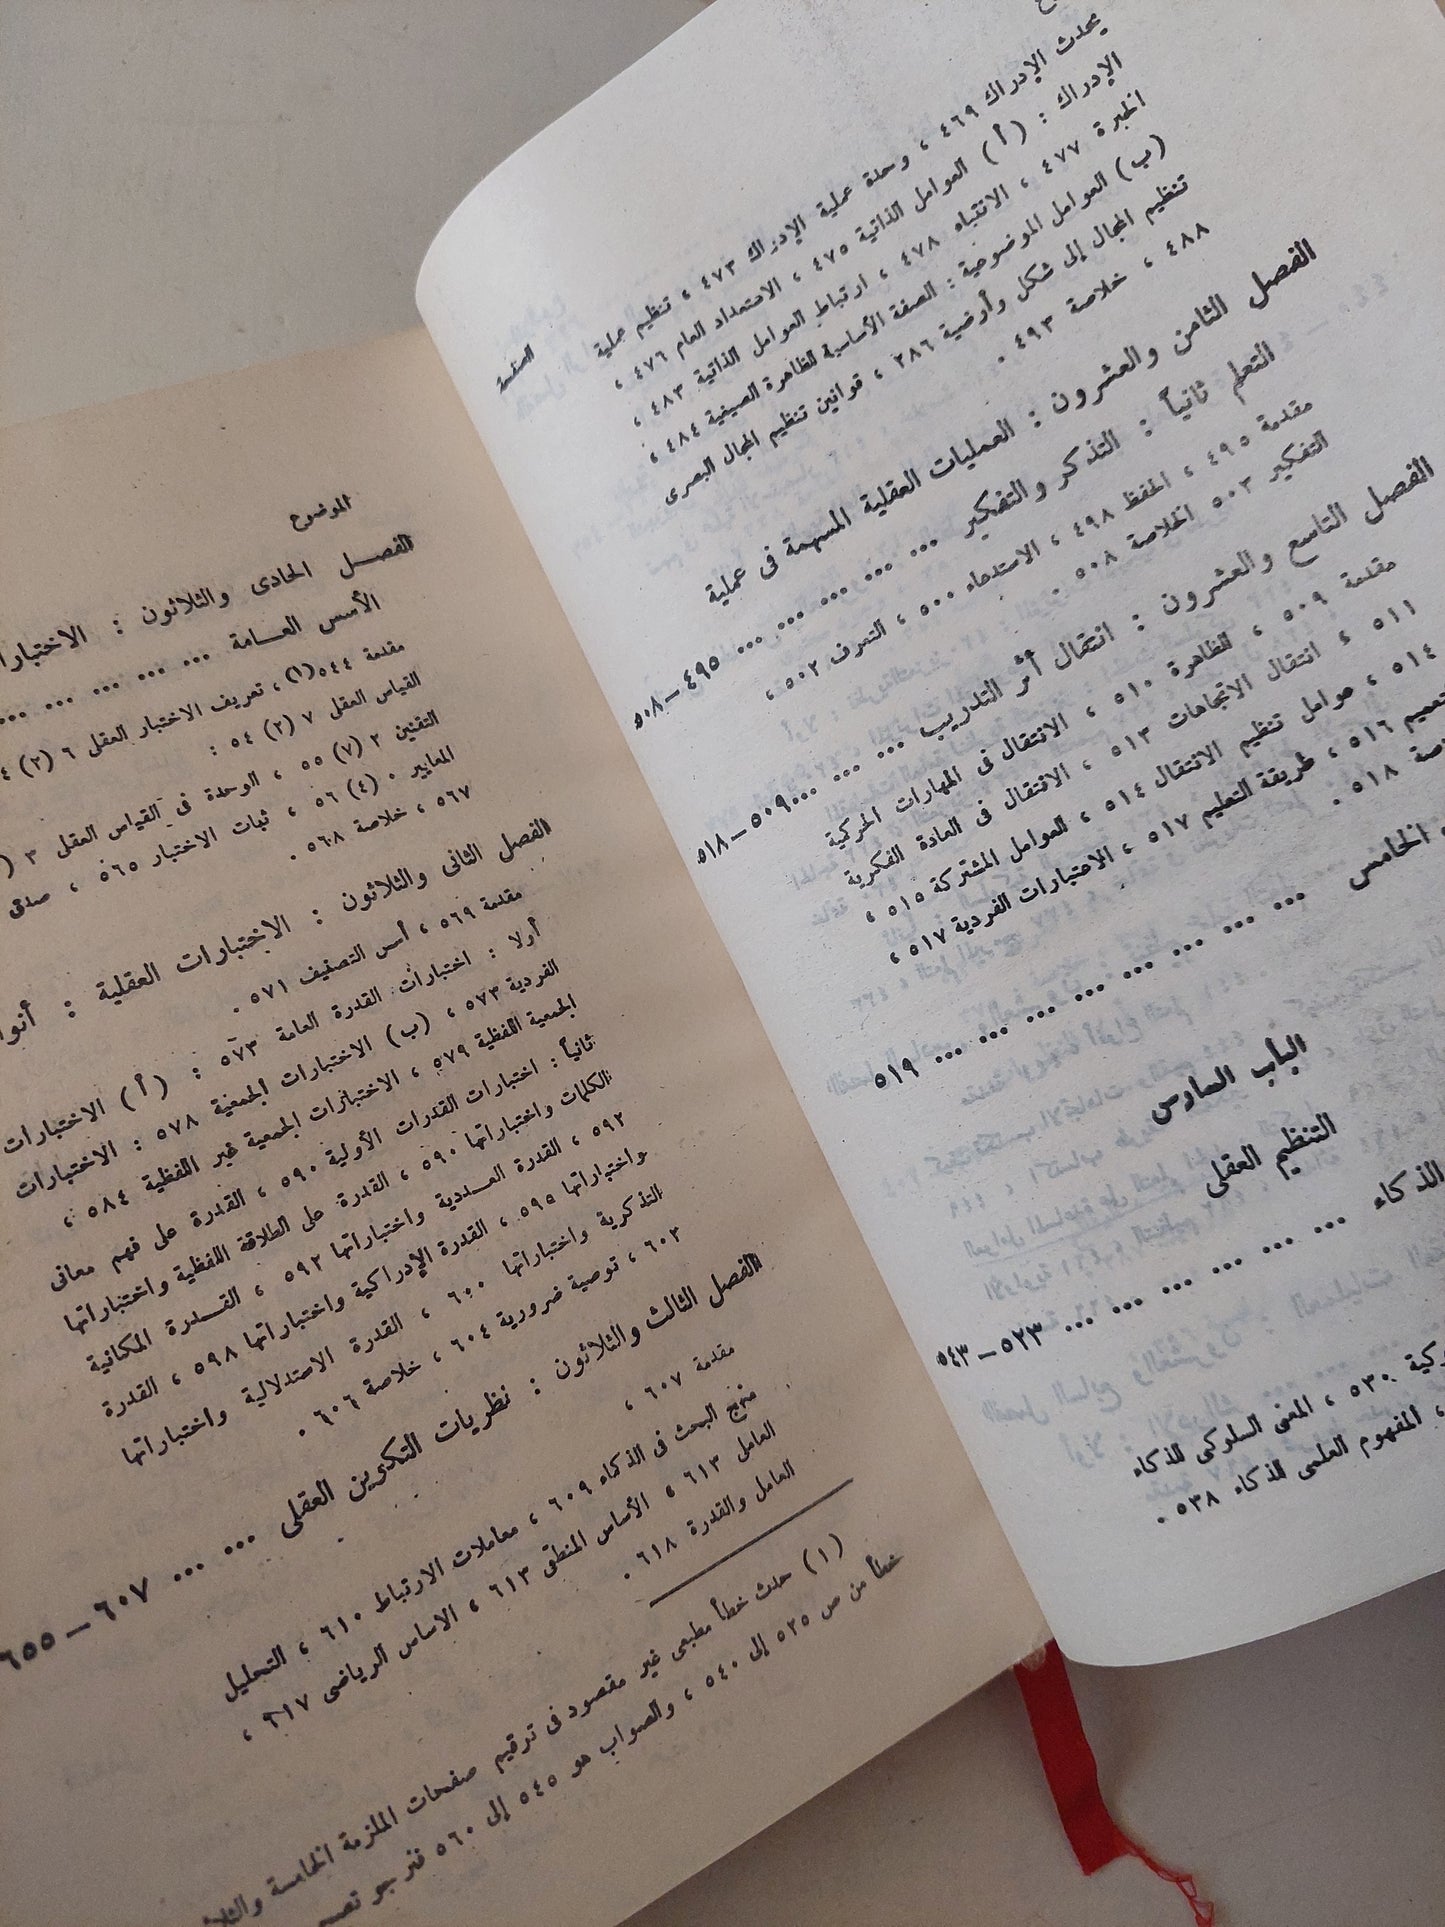 الصفحة
يحدث الإدراك ٤٦٩ ، وحدة عملية الإدراك ٤٧٣ ، تنظيم عملية
الإدراك : ( أ ) العوامل الذاتية ٤٧٥ ، الاستعداد العام ٤٧٦ ،
الخبرة ٤٧٧ ، الانتباه ٤٧٨ ، ارتباط العوامل الذاتية ٤٨٣ ،
(ب) العوامل الموضوعية : الصفة الأساسية للظاهرة الصيفية ٤٨٤ ،
تنظيم المجال إلى شكل وأرضية ٢٨٦ ، قوانين تنظيم المجال البصرى
٤٨٨ ، خلاصة ٤٩٣ .
الفصل الثامن والعشرون : العمليات العقلية المسهمة فى عملية
التعلم ثانياً : التذكر والتفكير ... ... ... ... ... ... ٤٩٥ – ٥٠٨
مقدمة ٤٩٥ ، الحفظ ٤٩٨ ، الاستدعاء ٥٠٠ ، التعرف ٥٠٢ ،
التفكير ٥٠٣ الخلاصة ٥٠٨ .
الفصل التاسع والعشرون : انتقال أثر التدريب ... ... ... ٥٠٩ – ٥١٨
مقدمة ٥٠٩ ، الظاهرة ٥١٠ ، الانتقال فى المهارات الحركية
٥١١ ، انتقال الاتجاهات ٥١٣ ، الانتقال فى العادة الفكرية
٥١٤ ، عوامل تنظيم الانتقال ٥١٤ ، العوامل المشتركة ٥١٥ ،
٥١٦ ، طريقة التعليم ٥١٧ ، الاختبارات الفردية ٥١٧ ،
٥١٨ .
الخامس ... ... ... ... ... ... ... ... ... ٥١٩
الباب السادس
التنظيم العقلى
الذكاء ... ... ... ... ... ... ... ٥٢٣ – ٥٤٣
٥٣٠ ، المعنى السلوكى للذكاء
، المفهوم العلمى للذكاء ٥٣٨ .
الموضوع
الفصل الحادى والثلاثون :
الأسس العامة ... ... ... ... ... ...
مقدمة ٥٤٤(١) ، تعريف الاختبار العقل ٦ (٢)
القياس العقل ٧ (٢) ٥٤ :
التقنين ٢ (٧) ٥٥ ، الوحدة فى القياس العقل ٣
المعايير ٠ (٤) ٥٦ ، ثبات الاختبار ٥٦٥ ، صدق
٥٦٧ ، خلاصة ٥٦٨ .
الفصل الثانى والثلاثون : الاختبارات العقلية :
مقدمة ٥٦٩ ، أسس التصنيف ٥٧١ .
أولا : اختبارات القدرة العامة ٥٧٣ : ( أ ) الاختبارات
الفردية ٥٧٣ ، (ب) الاختبارات الجمعية ٥٧٨ : الاختبارات
الجمعية اللفظية ٥٧٩ ، الاختبارات الجمعية غير اللفظية ٥٨٤ ،
ثانياً : اختبارات القدرات الأولية ٥٩٠ ، القدرة على فهم معانى
الكلمات واختباراتها ٥٩٠ ، القدرة على الطلاقة اللفظية واختباراتها
٥٩٢ ، القدرة العددية واختباراتها ٥٩٢ ، القدرة المكانية
واختباراتها ٥٩٥ ، القدرة الإدراكية واختباراتها ٥٩٨ ، القدرة
التذكرية واختباراتها ٦٠٠ ، القدرة الاستدلالية واختباراتها
٦٠٢ ، توصية ضرورية ٦٠٤ ، خلاصة ٦٠٦ .
الفصل الثالث والثلاثون : نظريات التكوين العقلى ... ... ٦٠٧ – ٦٥٥
مقدمة ٦٠٧ ،
منهج البحث فى الذكاء ٦٠٩ ، معاملات الارتباط ٦١٠ ، التحليل
العامل ٦١٣ ، الأساس المنطقى ٦١٣ ، الاساس الرياضى ٦١٧ ،
العامل والقدرة ٦١٨ .
(١) حدث خطأ مطبعى غير مقصود فى ترقيم صفحات الملزمة الخامسة
خطأ من ص ٥٢٥ إلى ٥٤٠ ، والصواب هو ٥٤٥ إلى ٥٦٠ فنرجو